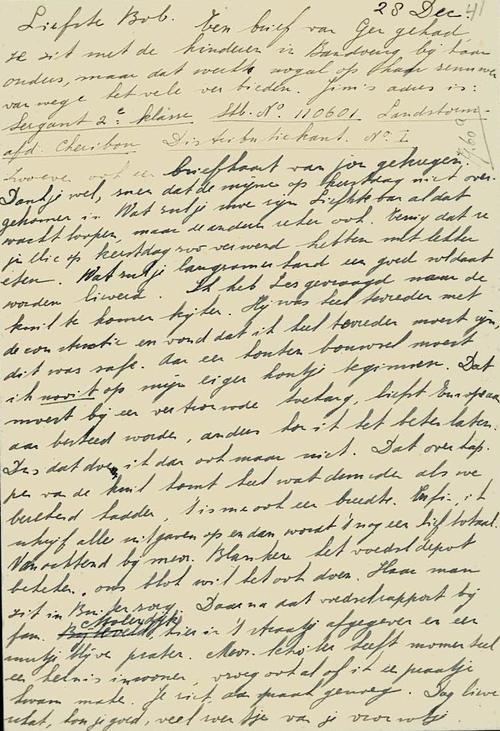 28 Dec. 41
Liefste Bob. Een brief van Ger gehad,
ze zit met de kinderen in Bandoeng bij haar
ouders, maar dat werkt nogal op haar zenuwen
vanwege het vele verbieden. Jim's adres is:
Sergant 2e klasse Stb. No. 110601 Landstorm-
afd. Cheribon Distributiekant. No. I
ook een briefkaart van jou gekregen.
Dank je wel, snoes dat de mijne op kerstdag niet over-
gekomen is. Wat zul je moe zijn liefste van al dat
wachtloopen, maar de anderen zeker ook. Eenig dat ze
jullie op kerstdag zoo verwend hebben met lekker
eten. Wat zul je langzamerhand een goed soldaat
worden lieverd. Ik heb Les gevraagd naar de
kuil te komen kijken. Hij was heel tevreden met
de constructie en vond dat ik heel tevreden moest zijn,
dit was safe. Aan een houten bouwsel moest
ik nooit op mijn eigen houtje beginnen. Dat
moest bij een vertrouwde belang, liefst Europeaan
aan besteed worden, anders kon ik het beter laten.
Dus dat doe ik dan ook maar niet. Dat overkap-
pen van de kuil komt heel wat duurder als we
berekend hadden, 't is me ook een breedte. Enfin, ik
schrijf alle uitgaven op en dan wordt 't nog een lief totaal.
Vanochtend bij mevr. Blankers het voedseldepot
bekeken, ons blok wil het ook doen. Haar man
zit in Buitenzorg. Daarna dat voedselrapport bij
fam. Molendijk, hier in 't straatje afgegeven en een
uurtje blijven praten. Mevr. Scholte heeft momenteel
een kennis inwonen, vroeg ook al of ik een praatje
kwam maken. Je ziet aanspraak genoeg. Dag lieve
schat, hou je goed, veel van je vrouwtje.